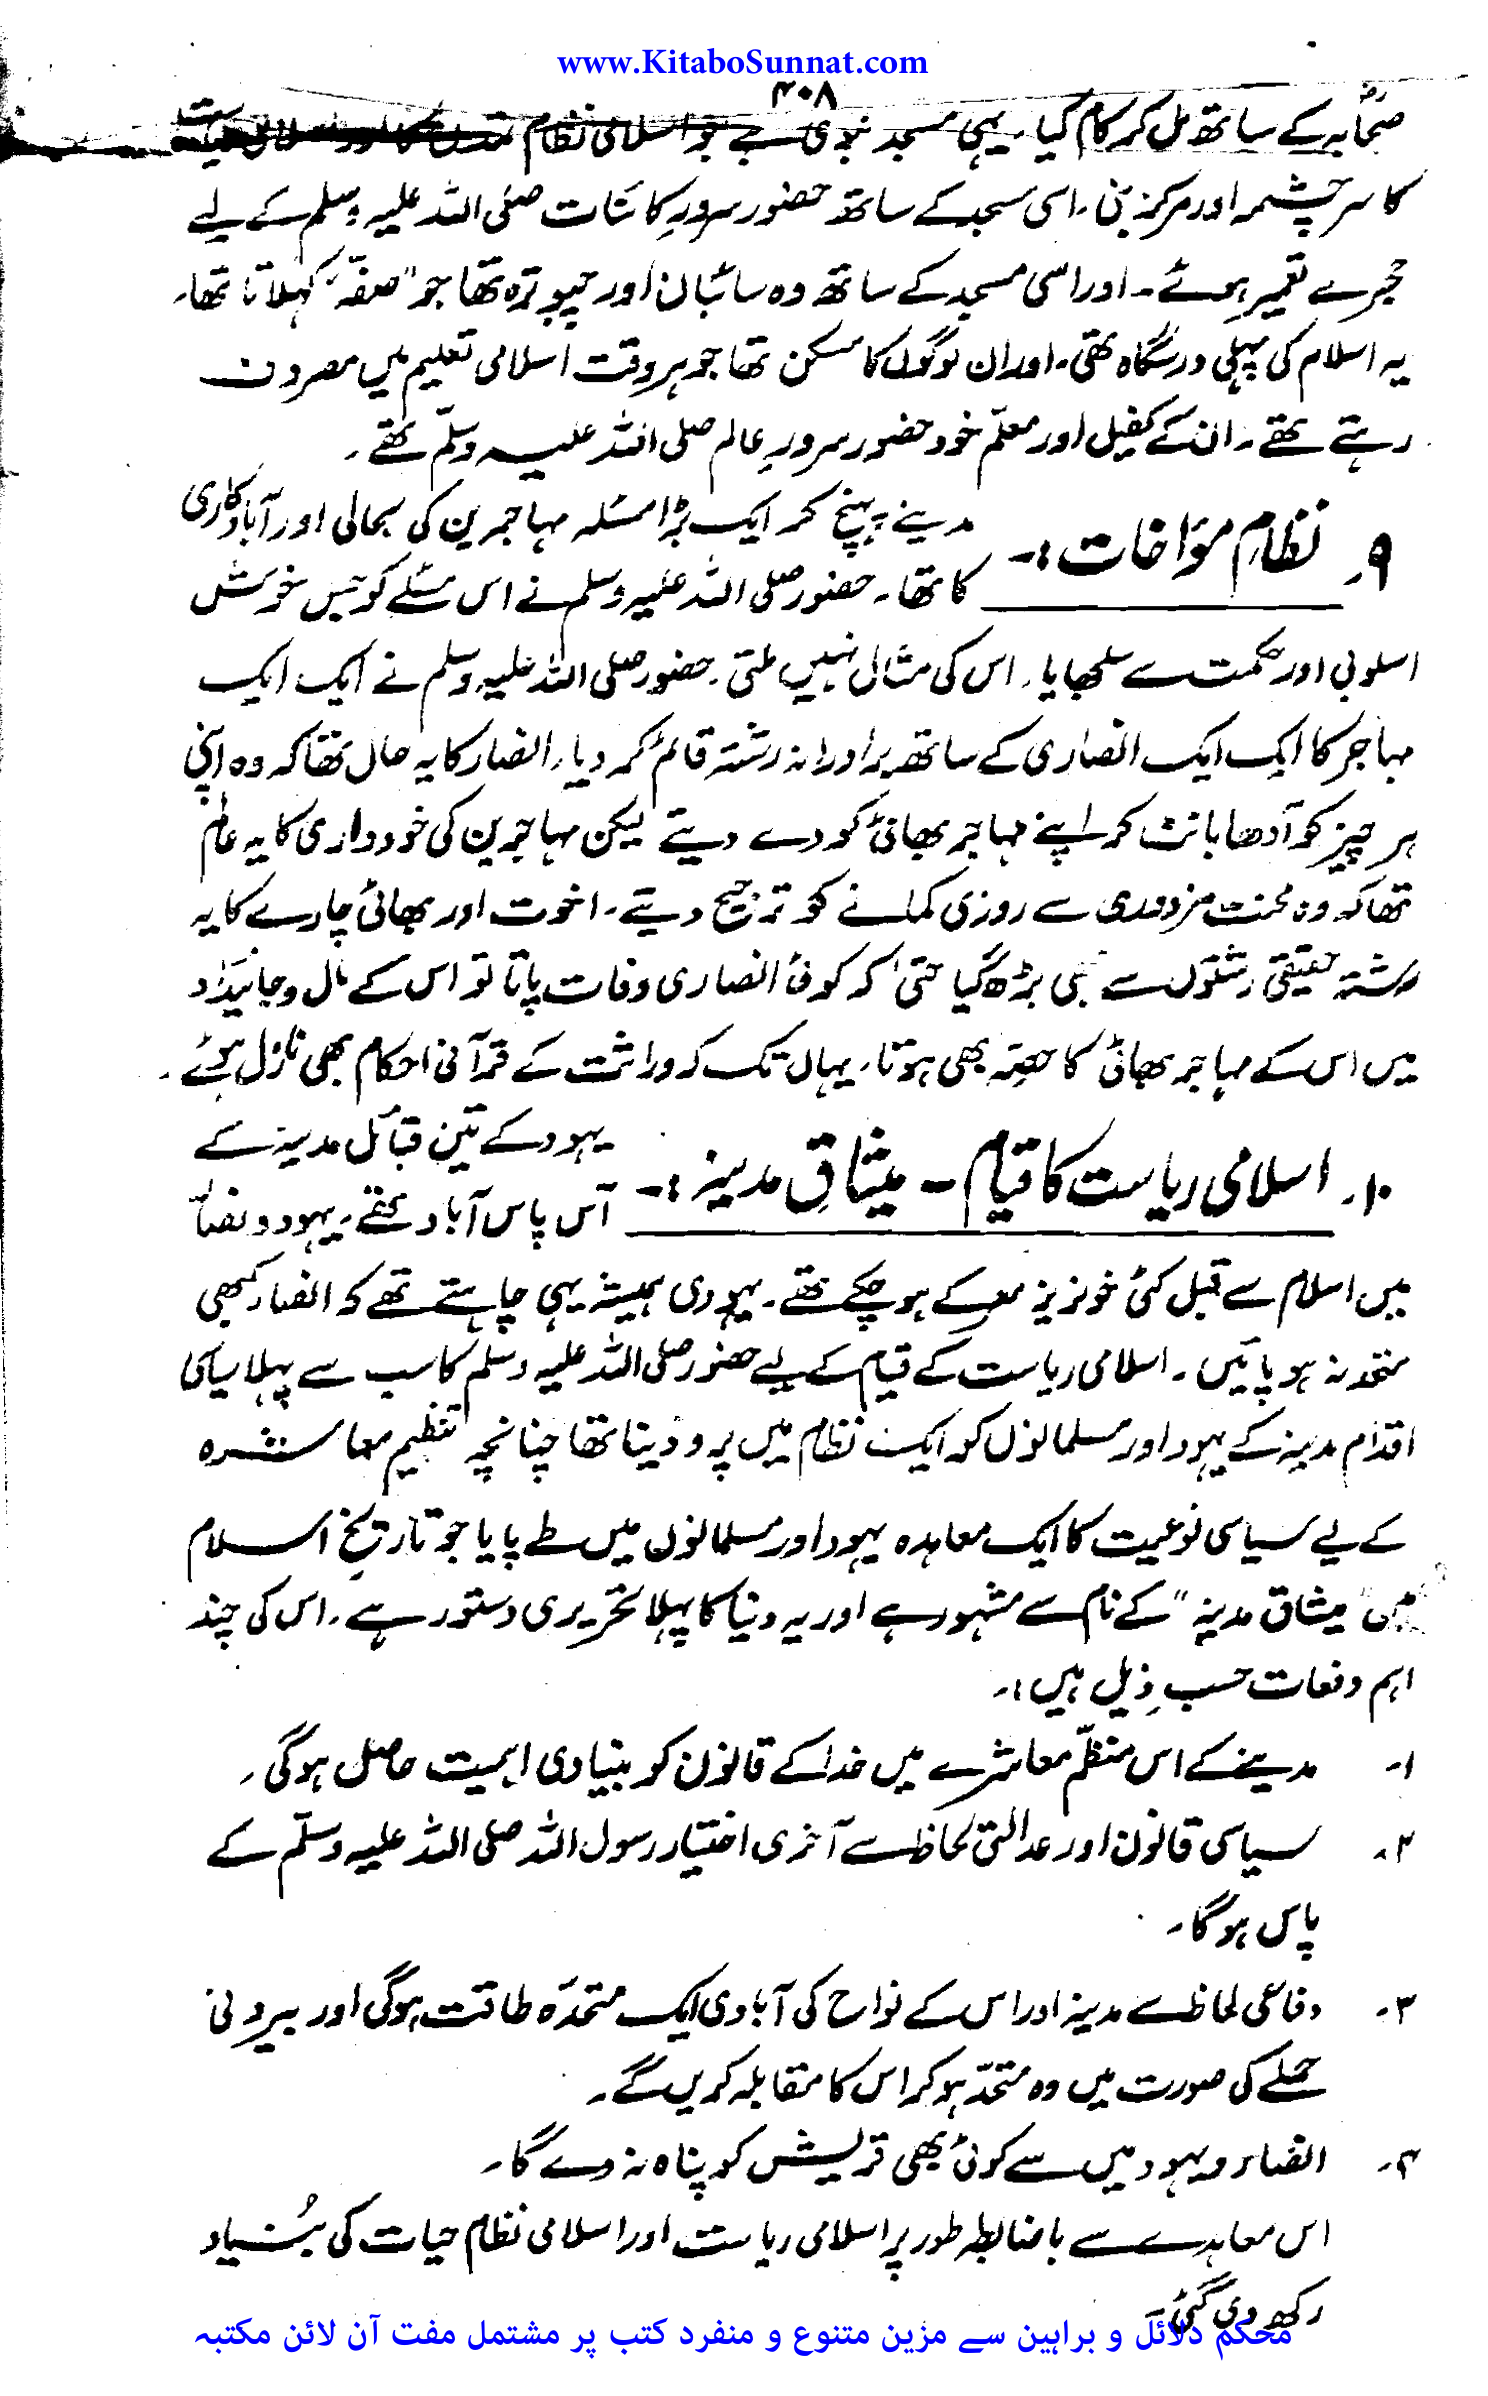 www.KitaboSunnat.com
۴۰۸
صحابہؓ کے ساتھ مل کر کام کیا۔ یہی مسجد نبوی ہے جو اسلامی نظام
کا سرچشمہ اور مرکز بنی۔ اسی مسجد کے ساتھ حضور سرورِ کائنات صلی اللہ علیہ وسلم کے لیے
حجرے تعمیر ہوئے۔ اور اسی مسجد کے ساتھ وہ سائبان اور چبوترہ تھا جو "صفّہ" کہلاتا تھا۔
یہ اسلام کی پہلی درسگاہ تھی۔ اور ان لوگوں کا مسکن تھا جو ہر وقت اسلامی تعلیم میں مصروف
رہتے تھے۔ ان کے کفیل اور معلّم خود حضور سرورِ عالم صلی اللہ علیہ وسلّم تھے۔
۹۔ نظامِ مؤاخات :۔ مدینے پہنچ کر ایک بڑا مسئلہ مہاجرین کی بحالی اور آباد کاری
کا تھا۔ حضور صلی اللہ علیہ وسلم نے اس مسئلے کو جس خوش
اسلوبی اور حکمت سے سلجھایا۔ اس کی مثال نہیں ملتی۔ حضور صلی اللہ علیہ وسلم نے ایک ایک
مہاجر کا ایک ایک انصاری کے ساتھ برادرانہ رشتہ قائم کر دیا۔ انصار کا یہ حال تھا کہ وہ اپنی
ہر چیز کو آدھا بانٹ کر اپنے مہاجر بھائی کو دے دیتے لیکن مہاجرین کی خودداری کا یہ عالم
تھا کہ وہ محنت مزدوری سے روزی کمانے کو ترجیح دیتے۔ اخوت اور بھائی چارے کا یہ
رشتہ حقیقی رشتوں سے بھی بڑھ گیا حتیٰ کہ کوئی انصاری وفات پاتا تو اس کے مال و جائیداد
میں اس کے مہاجر بھائی کا حصہ بھی ہوتا۔ یہاں تک کہ وراثت کے قرآنی احکام بھی نازل ہوئے۔
۱۰۔ اسلامی ریاست کا قیام – میثاقِ مدینہ :۔ یہود کے تین قبائل مدینہ کے
آس پاس آباد تھے۔ یہود و نصاریٰ
میں اسلام سے قبل کئی خونریز معرکے ہو چکے تھے۔ یہودی ہمیشہ یہی چاہتے تھے کہ انصار کبھی
متحد نہ ہو پائیں۔ اسلامی ریاست کے قیام کے لیے حضور صلی اللہ علیہ وسلم کا سب سے پہلا سیاسی
اقدام مدینہ کے یہود اور مسلمانوں کو ایک نظام میں پرو دینا تھا چنانچہ تنظیم معاشرہ
کے لیے سیاسی نوعیت کا ایک معاہدہ یہود اور مسلمانوں میں طے پایا جو تاریخ اسلام
میں "میثاق مدینہ" کے نام سے مشہور ہے اور یہ دنیا کا پہلا تحریری دستور ہے۔ اس کی چند
اہم دفعات حسبِ ذیل ہیں :۔
۱۔ مدینے کے اس منظّم معاشرے میں خدا کے قانون کو بنیادی اہمیت حاصل ہو گی۔
۲۔ سیاسی قانون اور عدالتی لحاظ سے آخری اختیار رسول اللہ صلی اللہ علیہ وسلّم کے
پاس ہو گا۔
۳۔ دفاعی لحاظ سے مدینہ اور اس کے نواح کی آبادی ایک متحدہ طاقت ہو گی اور بیرونی
حملے کی صورت میں وہ متحدّ ہو کر اس کا مقابلہ کریں گے۔
۴۔ انصار و یہود میں سے کوئی بھی قریش کو پناہ نہ دے گا۔
اس معاہدے سے باضابطہ طور پر اسلامی ریاست اور اسلامی نظام حیات کی بُنیاد
رکھ دی گئی۔
محکم دلائل و براہین سے مزین متنوع و منفرد کتب پر مشتمل مفت آن لائن مکتبہ